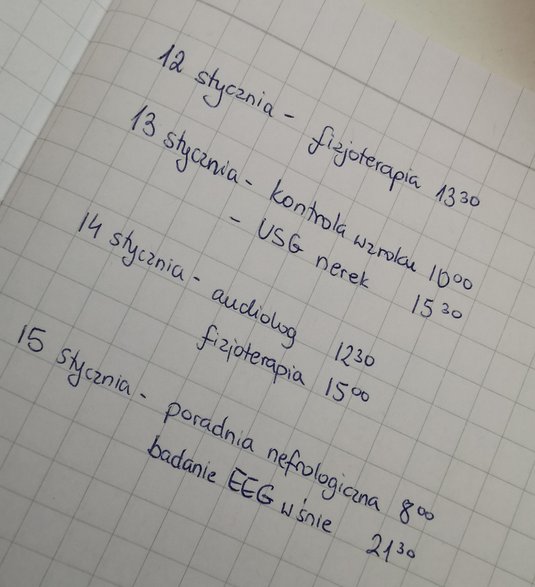 12 stycznia - fizjoterapia 13³⁰
13 stycznia - kontrola wzroku 10⁰⁰
- USG nerek 15³⁰
14 stycznia - audiolog 12³⁰
fizjoterapia 15⁰⁰
15 stycznia - poradnia nefrologiczna 8⁰⁰
badanie EEG w śnie 21³⁰